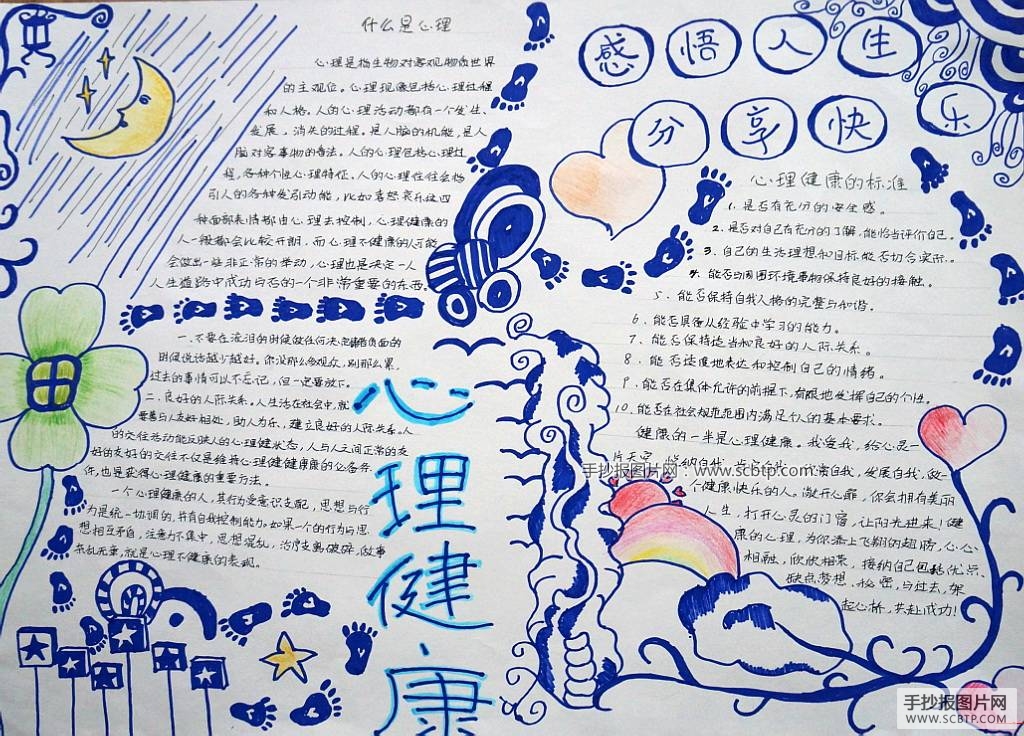 什么是心理
心理是指生物对客观物质世界
的主观位。心理现象包括心理过程
和人格。人的心理活动都有一个发生、
发展，消失的过程，是人脑的机能，是人
脑对客事物的看法。人的心理包括心理过
程，各种个性心理特征。人的心理往往会指
引人的各种发引动能，比如喜怒哀乐这四
种面部表情都由心理去控制，心理健康的
人一般都会比较开朗，而心理不健康的人可能
会做出一些非正常的举动，心理也是决定一人
人生道路中成功与否的一个非常重要的东西。
一、不要在流泪的时候做任何决定 负面的
时候说话越少越好。你没那么多观众，别那么累。
过去的事情可以不忘记，但一定要放下。
二、良好的人际关系。人生活在社会中，就
要善与人友好相处，助人为乐，建立良好的人际关系。人
的交往活动能反映人的心理健状态，人与人之间正常的友
好的友好的交往不仅是维持心理健健康康的必备条
件，也是获得心理健康的重要方法。
一个心理健康的人，其行为受意识支配，思想与行
为是统一协调的，并有自我控制能力。如果一个的行为与思
想相互矛盾，注意力不集中，思想混乱，语言支离破碎，做事
杂乱无章，就是心理不健康的表现。
心理健康
感悟人生
分享快乐
心理健康的标准
1. 是否有充分的安全感。
2. 是否对自己有充分的了解，能恰当评价自己。
3. 自己的生活理想和目标能否切合实际。
4. 能否与周围环境事物保持良好的接触。
5. 能否保持自我人格的完整与和谐。
6. 能否具备从经验中学习的能力。
7. 能否保持适当和良好的人际关系。
8. 能否适度地表达和控制自己的情绪。
9. 能否在集体允许的前提下，有限地发挥自己的个性。
10. 能否在社会规范范围内满足个人的基本要求。
健康的一半是心理健康。我爱我，给心灵一
片天空，悦纳自我，发展自我，做一
个健康快乐的人。敞开心扉，你会拥有美丽
人生，打开心灵的门窗，让阳光进来！健
康的心理，为你添上飞翔的翅膀，心心
相融，欣欣相荣，接纳自己包括优点、
缺点梦想、秘密，与过去，架
起心桥，共赴成功！
手抄报图片网 www.scbtp.com
手抄报图片网
WWW.SCBTP.COM